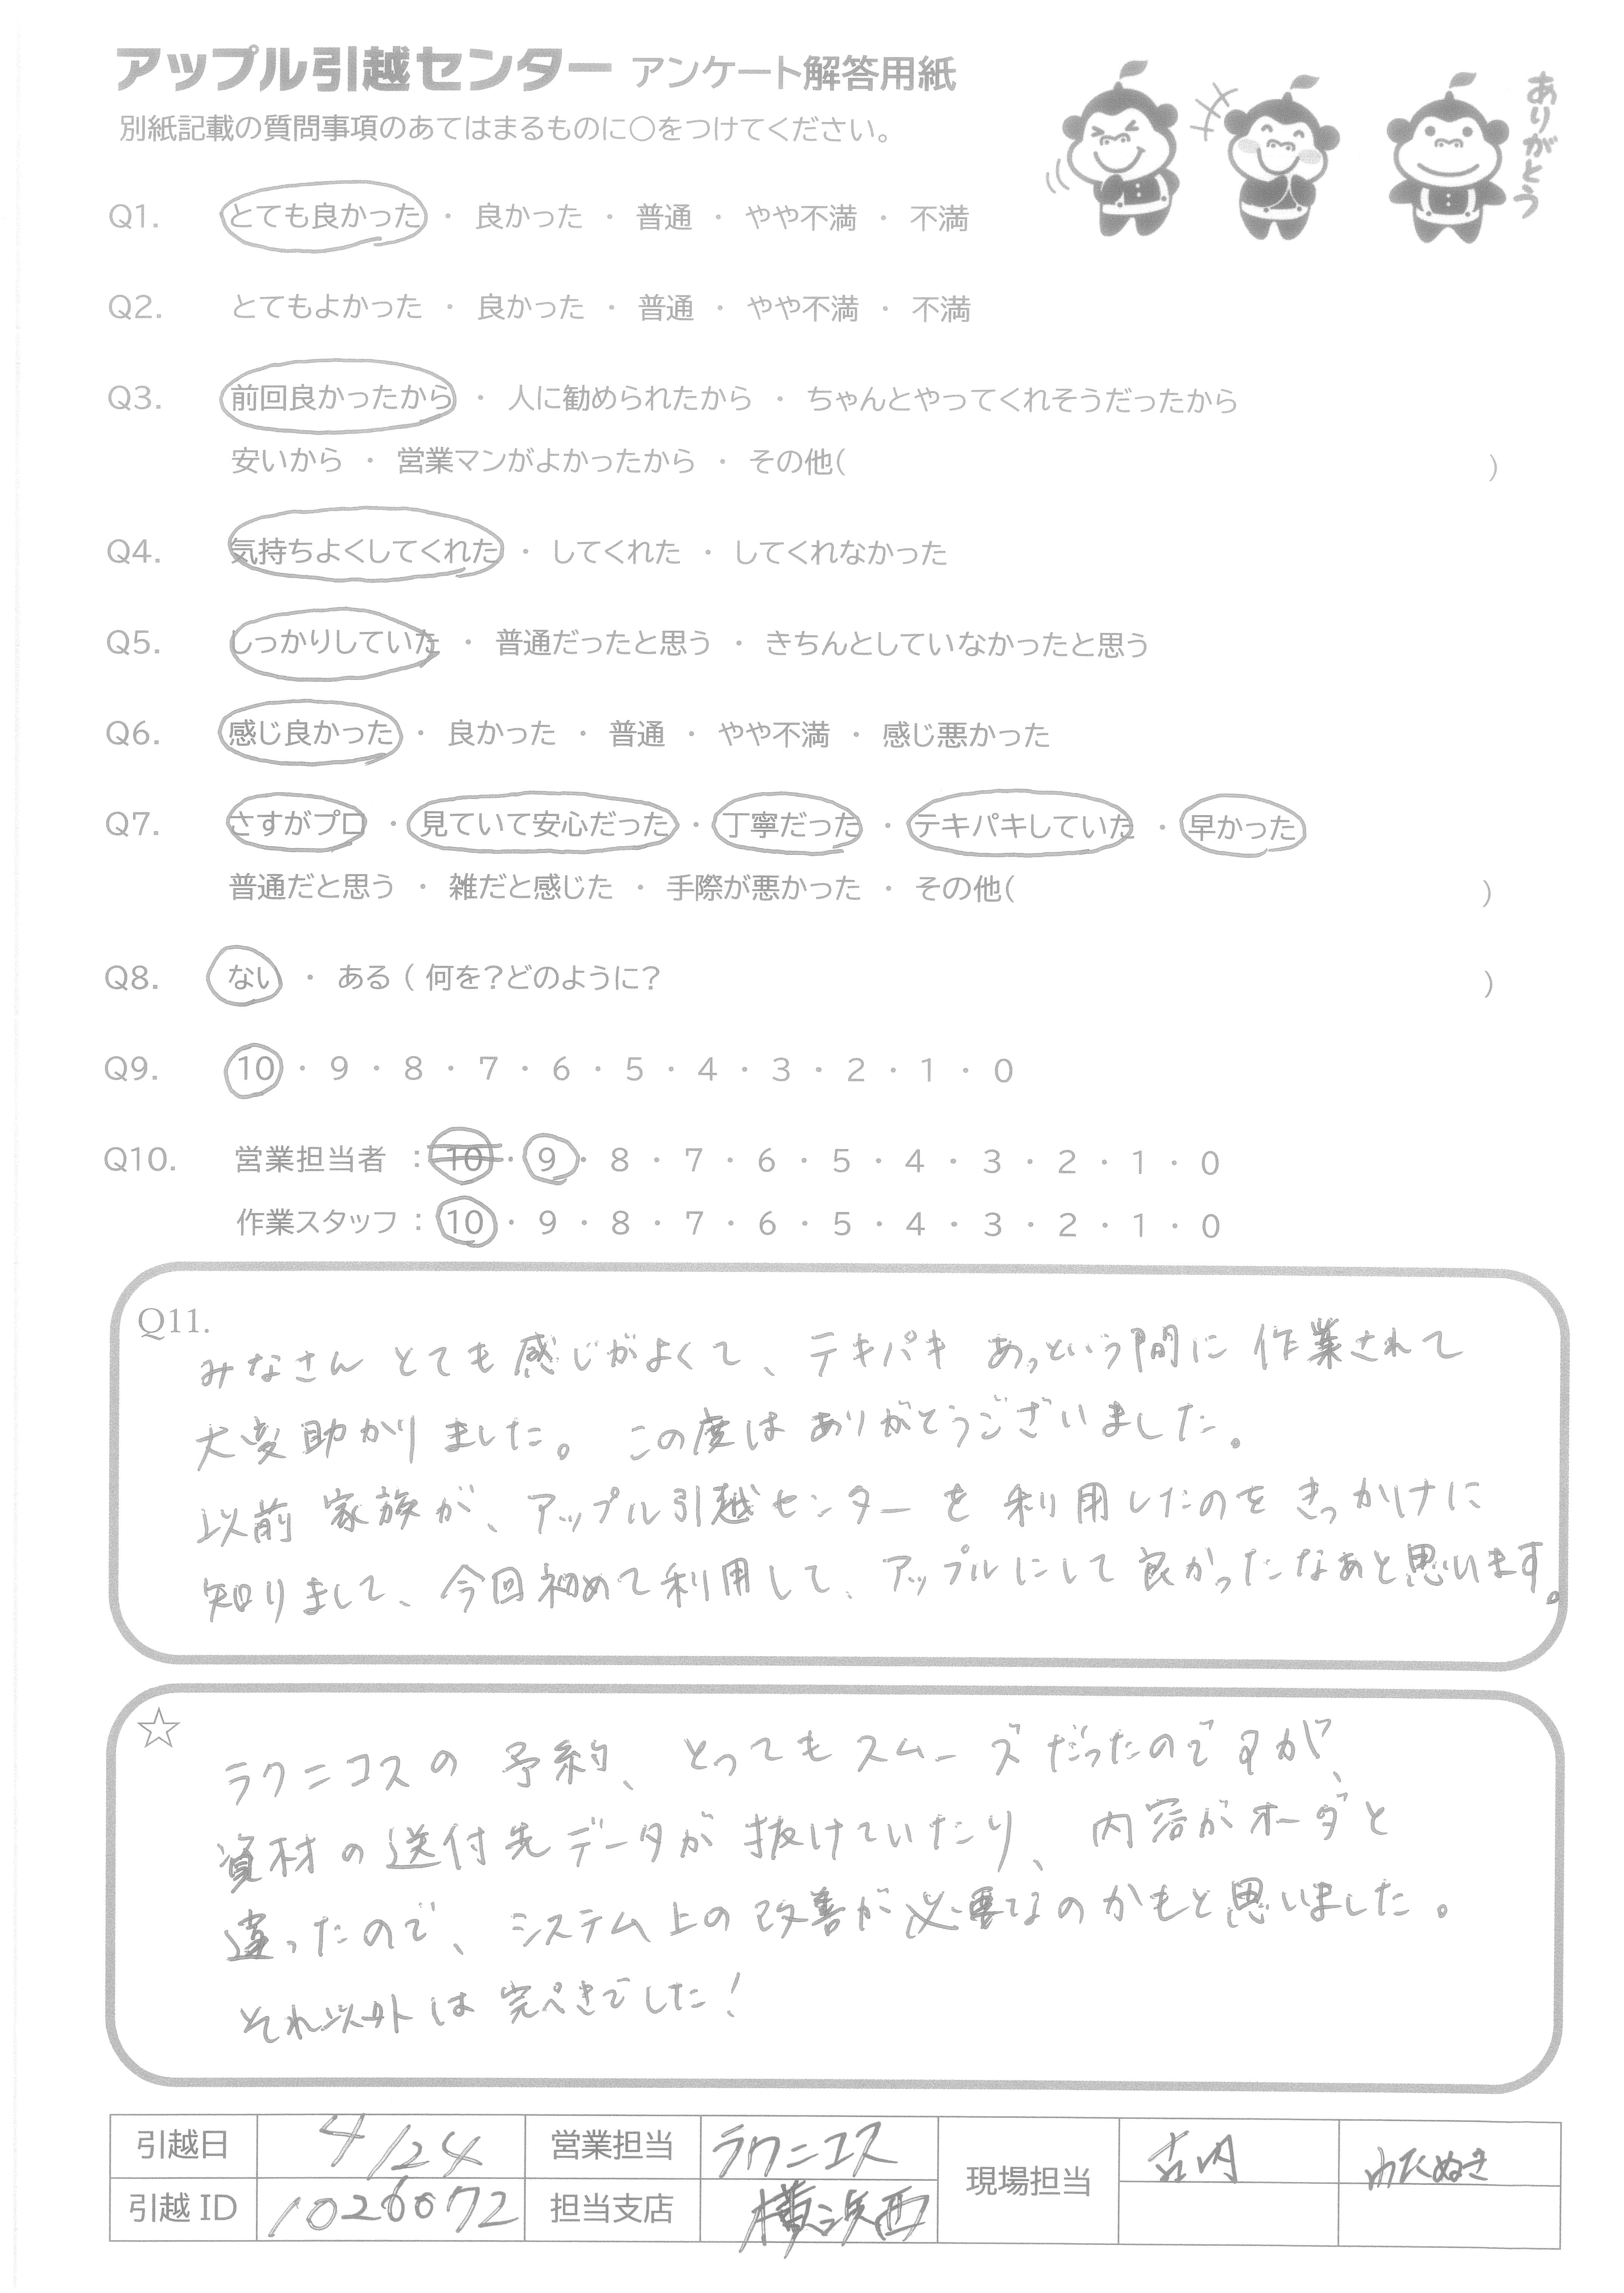 アップル引越センター アンケート解答用紙
ありがとう
別紙記載の質問事項のあてはまるものに○をつけてください。
Q1. とても良かった ・ 良かった ・ 普通 ・ やや不満 ・ 不満
Q2. とてもよかった ・ 良かった ・ 普通 ・ やや不満 ・ 不満
Q3. 前回良かったから ・ 人に勧められたから ・ ちゃんとやってくれそうだったから
安いから ・ 営業マンがよかったから ・ その他( )
Q4. 気持ちよくしてくれた ・ してくれた ・ してくれなかった
Q5. しっかりしていた ・ 普通だったと思う ・ きちんとしていなかったと思う
Q6. 感じ良かった ・ 良かった ・ 普通 ・ やや不満 ・ 感じ悪かった
Q7. さすがプロ ・ 見ていて安心だった ・ 丁寧だった ・ テキパキしていた ・ 早かった
普通だと思う ・ 雑だと感じた ・ 手際が悪かった ・ その他( )
Q8. ない ・ ある ( 何を?どのように? )
Q9. 10 ・ 9 ・ 8 ・ 7 ・ 6 ・ 5 ・ 4 ・ 3 ・ 2 ・ 1 ・ 0
Q10. 営業担当者 : 10 ・ 9 ・ 8 ・ 7 ・ 6 ・ 5 ・ 4 ・ 3 ・ 2 ・ 1 ・ 0
作業スタッフ : 10 ・ 9 ・ 8 ・ 7 ・ 6 ・ 5 ・ 4 ・ 3 ・ 2 ・ 1 ・ 0
Q11.
みなさん とても 感じがよくて、テキパキ あっという間に 作業されて
大変助かりました。 この度は ありがとうございました。
以前 家族が、アップル引越センターを 利用したのを きっかけに
知りまして、今回初めて利用して、アップルにして良かったなあと思います。
☆
ラクニコスの 予約、とってもスムーズだったのですが、
資材の送付先データが 抜けていたり、内容がオーダと
違ったので、システム上の改善が必要なのかもと思いました。
それ以外は完ぺきでした!
引越日 4/24 営業担当 ラクニコス 現場担当 古内 わたぬき
引越 ID 1026072 担当支店 横浜西